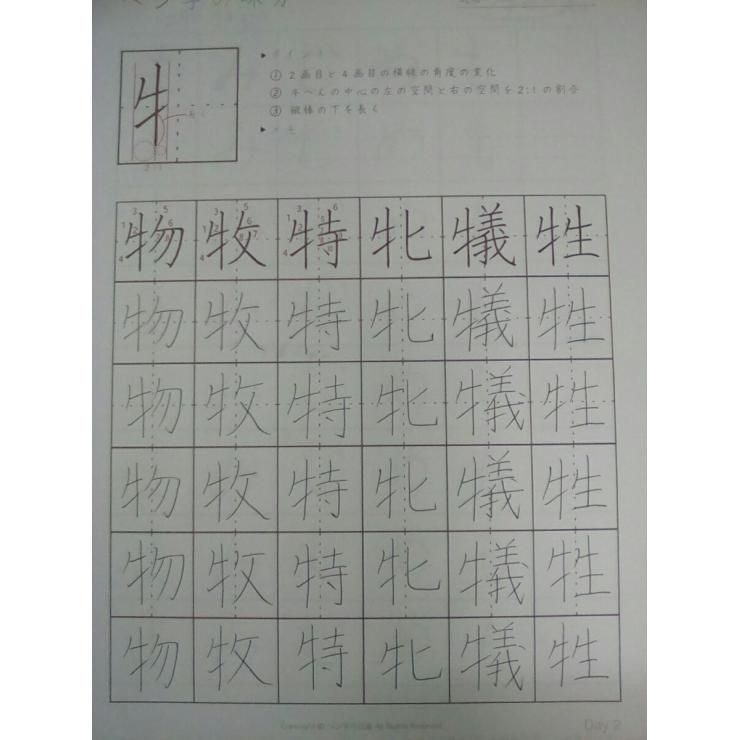 ペン字の味方
牛
長く
2:1
▶ポイント
① 2画目と4画目の横線の角度の変化
② 牛へんの中心の左の空間と右の空間を2:1の割合
③ 縦棒の下を長く
▶メモ
物 牧 特 牝 犠 牲
物 牧 特 牝 犠 牲
物 牧 特 牝 犠 牲
物 牧 特 牝 犠 牲
物 牧 特 牝 犠 牲
物 牧 特 牝 犠 牲
Day 2